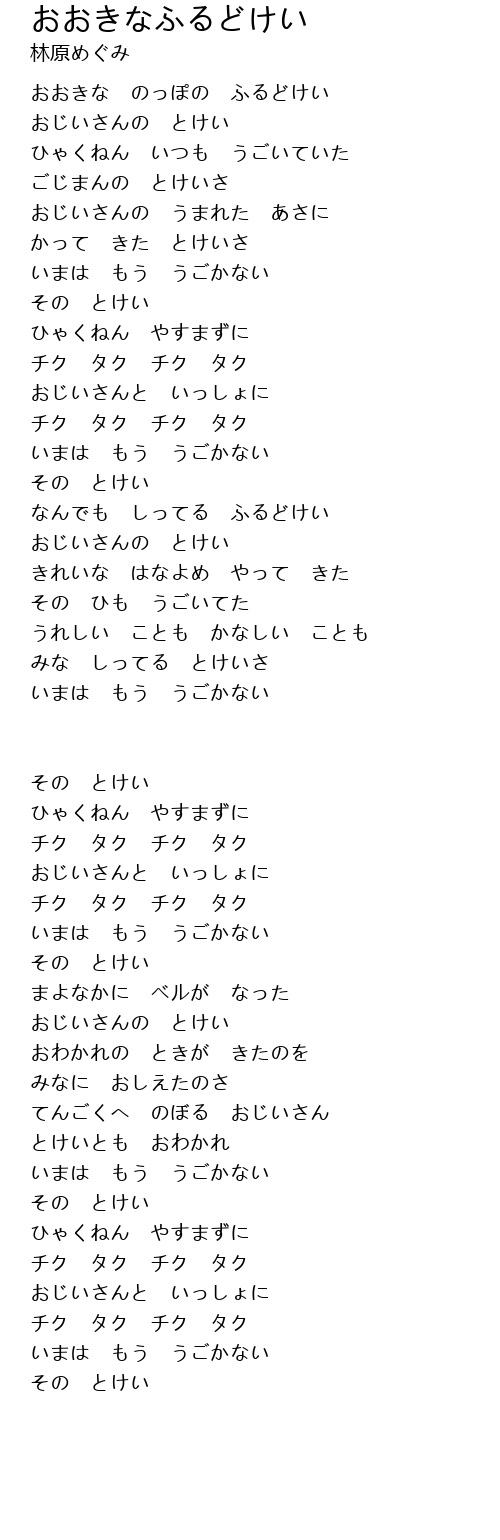 おおきなふるどけい
林原めぐみ
おおきな　のっぽの　ふるどけい
おじいさんの　とけい
ひゃくねん　いつも　うごいていた
ごじまんの　とけいさ
おじいさんの　うまれた　あさに
かって　きた　とけいさ
いまは　もう　うごかない
その　とけい
ひゃくねん　やすまずに
チク　タク　チク　タク
おじいさんと　いっしょに
チク　タク　チク　タク
いまは　もう　うごかない
その　とけい
なんでも　しってる　ふるどけい
おじいさんの　とけい
きれいな　はなよめ　やって　きた
その　ひも　うごいてた
うれしい　ことも　かなしい　ことも
みな　しってる　とけいさ
いまは　もう　うごかない
その　とけい
ひゃくねん　やすまずに
チク　タク　チク　タク
おじいさんと　いっしょに
チク　タク　チク　タク
いまは　もう　うごかない
その　とけい
まよなかに　ベルが　なった
おじいさんの　とけい
おわかれの　ときが　きたのを
みなに　おしえたのさ
てんごくへ　のぼる　おじいさん
とけいとも　おわかれ
いまは　もう　うごかない
その　とけい
ひゃくねん　やすまずに
チク　タク　チク　タク
おじいさんと　いっしょに
チク　タク　チク　タク
いまは　もう　うごかない
その　とけい